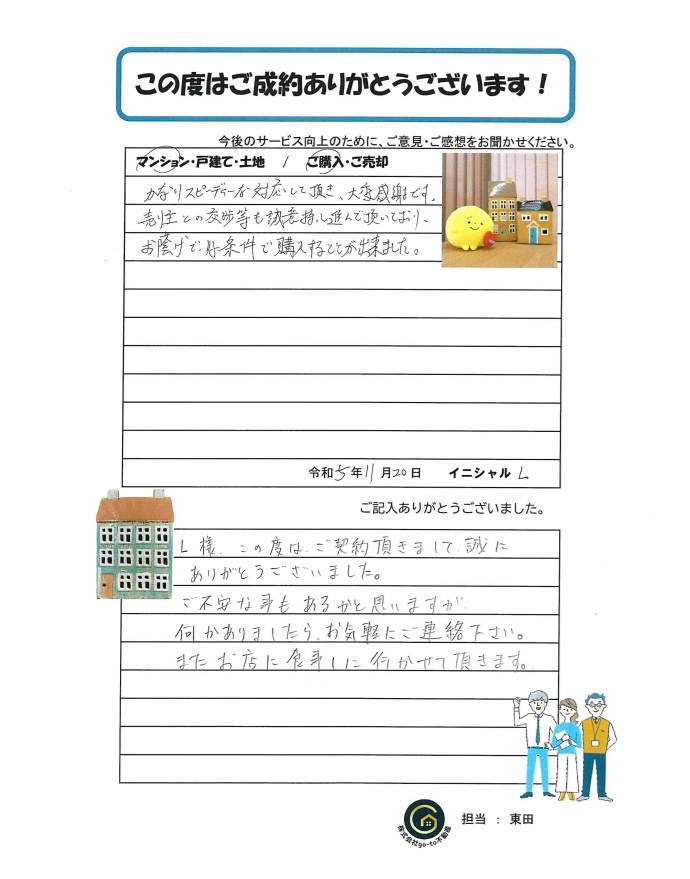 この度はご成約ありがとうございます！
今後のサービス向上のために、ご意見・ご感想をお聞かせください。
マンション・戸建て・土地　/　ご購入・ご売却
かなりスピーディーな対応して頂き、大変感謝です。
売主との交渉等も誠意持し進んで頂いており、
お蔭げで好条件で購入することが出来ました。
令和5年11月20日　イニシャル L
ご記入ありがとうございました。
L様、この度は、ご契約頂きまして、誠に
ありがとうございました。
ご不安な事もあるかと思いますが、
何かありましたら、お気軽にご連絡下さい。
またお店に食事しに行かせて頂きます。
株式会社go-to不動産
担当 ： 東田